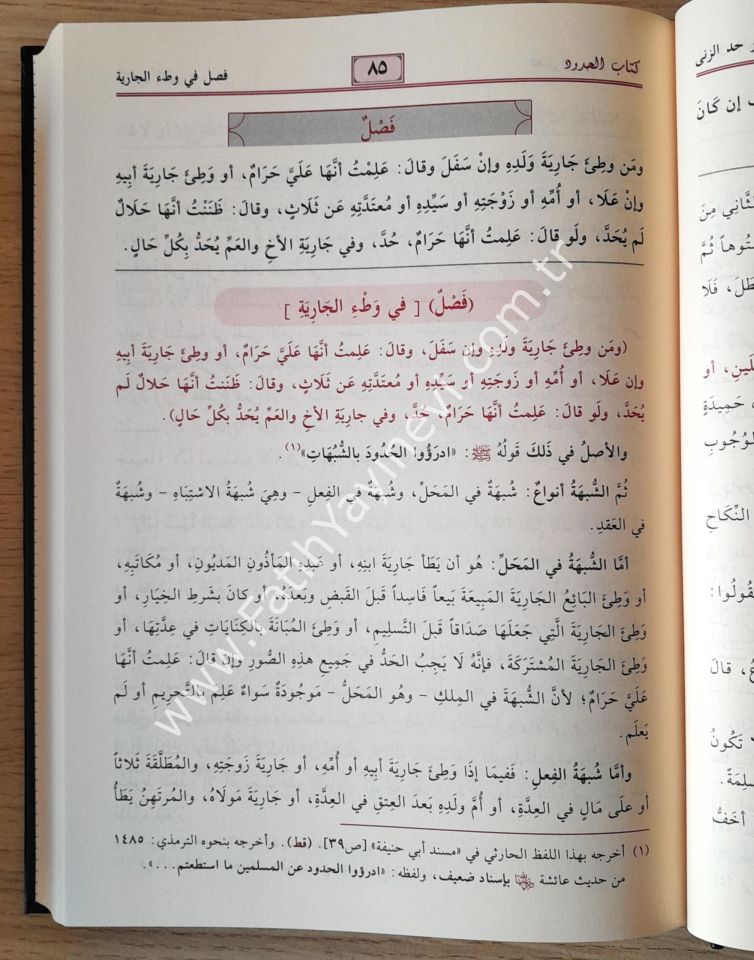 كتاب الحدود
٨٥
فصل في وطء الجارية
فَصْلٌ
ومَن وطِئَ جَارِيَةَ وَلَدِهِ وإنْ سَفَلَ وقالَ: عَلِمْتُ أنَّهَا عَلَيَّ حَرَامٌ، أو وَطِئَ جَارِيَةَ أبِيهِ
وإنْ عَلَا، أو أُمِّهِ أو زَوْجَتِهِ أو سَيِّدِهِ أو مُعتَدَّتِهِ عَن ثَلَاثٍ، وقالَ: ظَنَنْتُ أنَّهَا حَلَالٌ
لَم يُحَدَّ، ولَو قالَ: عَلِمتُ أنَّهَا حَرَامٌ، حُدَّ، وفي جَارِيَةِ الأخِ والعَمِّ يُحَدُّ بِكُلِّ حالٍ.
(فَصْلٌ) [ في وَطْءِ الجَارِيَةِ ]
(ومَن وطِئَ جَارِيَةَ ولَدِهِ وإن سَفَلَ، وقالَ: عَلِمتُ أنَّهَا عَلَيَّ حَرَامٌ، أو وطِئَ جَارِيَةَ أبِيهِ
وإن عَلَا، أو أُمِّهِ أو زَوجَتِهِ أو سَيِّدِهِ أو مُعتَدَّتِهِ عَن ثَلَاثٍ، وقالَ: ظَنَنتُ أنَّهَا حَلَالٌ لَم
يُحَدَّ، ولَو قالَ: عَلِمتُ أنَّهَا حَرَامٌ، حُدَّ، وفي جاريَةِ الأخِ والعَمِّ يُحَدُّ بكُلِّ حالٍ).
والأصلُ في ذَلكَ قَولُهُ ﷺ: «ادرَؤُوا الحُدُودَ بالشُّبُهَاتِ»(١).
ثُمَّ الشُّبهَةُ أنواعٌ: شُبهَةٌ في المَحَلِّ، وشُبهَةٌ في الفِعلِ – وهِيَ شُبهَةُ الاشتِبَاهِ – وشُبهَةٌ
في العَقدِ.
أمَّا الشُّبهَةُ في المَحَلِّ: هُو أن يَطَأَ جَارِيَةَ ابنِهِ، أو عَبدِهِ المَأذُونِ المَديُونِ، أو مُكَاتَبِهِ،
أو وَطِئَ البَائِعُ الجَارِيَةَ المَبِيعَةَ بَيعاً فَاسِداً قَبلَ القَبضِ وبَعدَهُ، أو كانَ بشَرطِ الخِيَارِ، أو
وَطِئَ الجَارِيَةَ الَّتِي جَعَلَهَا صَدَاقاً قَبلَ التَّسلِيمِ، أو وَطِئَ المُبَانَةَ بالكِنَايَاتِ في عِدَّتِهَا، أو
وَطِئَ الجَارِيَةَ المُشتَرَكَةَ، فإنَّهُ لَا يَجِبُ الحَدُّ في جَمِيعِ هذِهِ الصُّورِ وإن قالَ: عَلِمتُ أنَّهَا
عَلَيَّ حَرَامٌ؛ لأنَّ الشُّبهَةَ في المِلكِ – وهو المَحَلُّ – مَوجُودَةٌ سَواءٌ عَلِمَ بالتَّحرِيمِ أو لَم
يَعلَم.
وأمَّا شُبهَةُ الفِعلِ: فَفِيمَا إذَا وَطِئَ جَارِيَةَ أبِيهِ أو أُمِّهِ، أو جَارِيَةَ زَوجَتِهِ، والمُطَلَّقَةَ ثَلاثاً
أو علَى مَالٍ في العِدَّةِ، أو أُمَّ ولَدِهِ بَعدَ العِتقِ في العِدَّةِ، أو جَارِيَةَ مَولَاهُ، والمُرتَهِنُ يَطَأُ
(١) أخرجه بهذا اللفظ الحارثي في «مسند أبي حنيفة» [ص٣٩]. (قط). وأخرجه بنحوه الترمذي: ١٤٨٥
من حديث عائشة بإسناد ضعيف، ولفظه: «ادرؤوا الحدود عن المسلمين ما استطعتم...».
حد الزنى
إن كَانَ
ثُمَّ
فَلَا
أو
حَمِيدَةٍ
النِّكَاحِ
قالَ
تَكُونُ
أخَفُّ
www.FatihYayinevi.com.tr